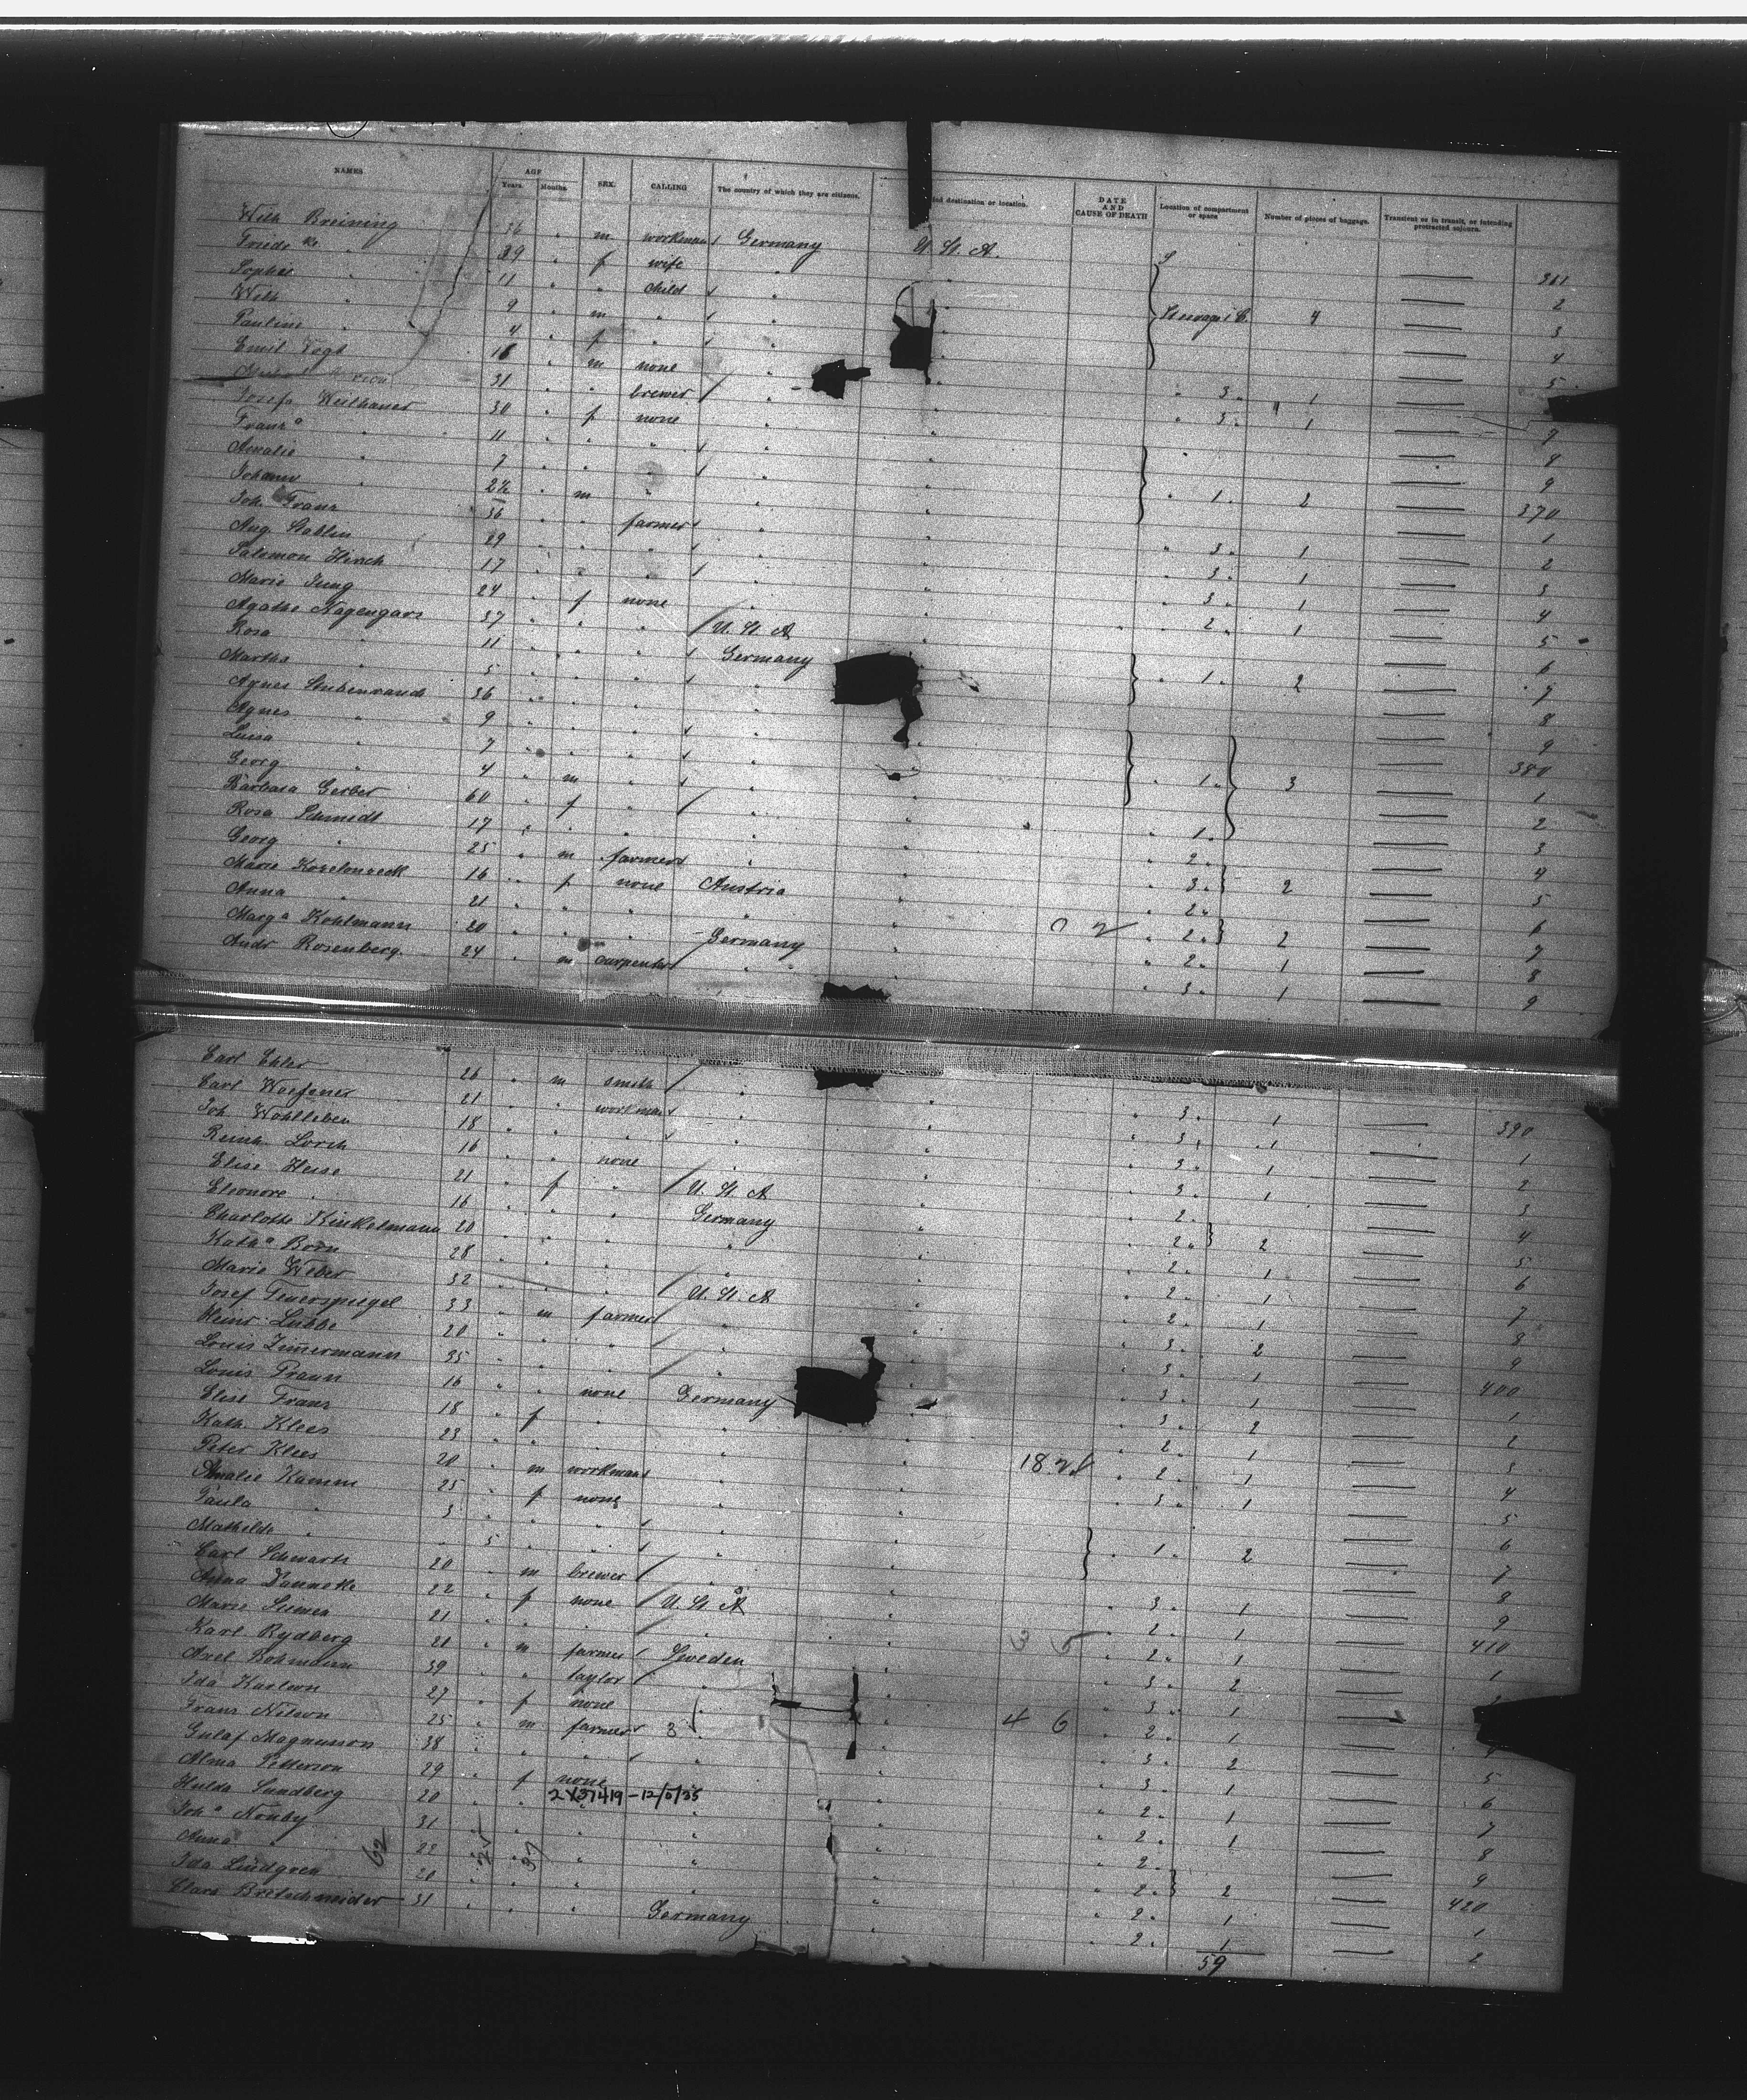 NAMES AGE Years. Months. SEX. CALLING The country of which they are citizens. ded destination or location. DATE AND CAUSE OF DEATH Location of compartment or space Number of pieces of baggage. Transient or in transit, or intending protracted sojourn.
Wilh Breining 36 m workman Germany U. St. A. 361
Friede ke " 39 f wife " 2
Sophie " 11 " child " 3
Wilh " 9 m " " 4 4
Pauline " 4 f " " 5
Emil Vogt 16 m none " 3. 1
31 " brewer " 3. 1 7
Josefa Weilhauer 30 f none " 8
Franz a " 11 " " " 9
Amalie " 7 " " " 1. 2 370
Johann " 2½ m " " 1
Joh. Franz 36 " farmer " 3. 1 2
Aug. Stablin 29 " " " 3. 1 3
Salomon Hirsch 17 " " " 3. 1 4
Marie Jung 24 f none " 2. 1 5
Agathe Nagengars 37 " " U. St. A 6
Rosa " 11 " " Germany 1. 2 7
Martha " 5 " " " 8
Agnes Stubenrauch 36 " " " 9
Agnes " 9 " " " 380
Luisa " 7 " " " 1. 3 1
Georg " 4 m " " 2
Barbara Gerber 60 f " " 1. 3
Rosa Schmidt 17 " " " 2. 4
Georg " 25 m farmer " 3. 2 5
Marie Kozelouseck 16 f none Austria 2. 6
Anna " 21 " " " 2. 2 7
Marg a Kohlmann 20 " " Germany 2. 1 8
Andr Rosenberg. 24 m carpenter " 3. 1 9
Carl Ehler 26 m smith " 3. 1 390
Carl Woefener 21 " workman " 3. 1 1
Joh Wohlleben 18 " " " 3. 1 2
Reinh. Lorch 16 " none " 3. 1 3
Elise Heise 21 f " U. St. A 2. 4
Eleonore " 16 " " Germany 2. 2 5
Charlotte Kinkelmann 20 " " " 2. 1 6
Kath a Born 28 " " " 2. 1 7
Marie Weber 32 " " U. St. A 2. 1 8
Josef Feuerspiegel 33 m farmer " 3. 2 9
Heinr Lübbe 20 " " " 3. 1 400
Louis Zimermann 35 " " " 3. 1 1
Louis Praun 16 " none Germany 3. 2 2
Elise Franz 18 f " " 2. 1 3
Kath. Klees 23 " " " 2. 1 4
Peter Klees 20 m workman " 3. 1 5
Amalie Kamm 25 f none " 6
Paula " 3 " " " 1. 2 7
Mathilde " 5 " " " 8
Carl Schwartz 20 m brewer " 3. 1 9
Anna Dannette 22 f none U. St. A 2. 1 410
Marie Siemer 21 " " " 2. 1 1
Karl Rydberg 21 m farmer Sweden 3. 2
Axel Bohmann 39 " taylor " 3. 1
Ida Karlson 27 f none " 2. 1 4
Franz Nilson 25 m farmer 3 " 4 6 3. 2 5
Gustaf Magnusson 38 " " " 3. 1 6
Alma Petterson 29 f none " 2. 1 7
2X37419-12/5/35
Hulda Sundberg 20 " " " 2. 1 8
Joh a Nouby 31 " " " 2. 9
Anna " 22 " " " 2. 2 420
Ida Lindgren 20 " " " 2. 1 1
Clara Bretschneider 31 " " Germany 2. 1 2
62 25 37
59